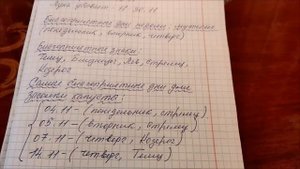 Луна убывает - 17
Благоприятные дни недели, мужские
(понедельник, вторник, четверг)
Благоприятные знаки:
Телец, Близнецы, Лев, Стрелец,
Козерог
Самые благоприятные дни для
засолки капусты:
04.11 - (понедельник, стрелец)
05.11 - (вторник, стрелец)
07.11 - (четверг, Козерог)
14.11 - (четверг, Телец)